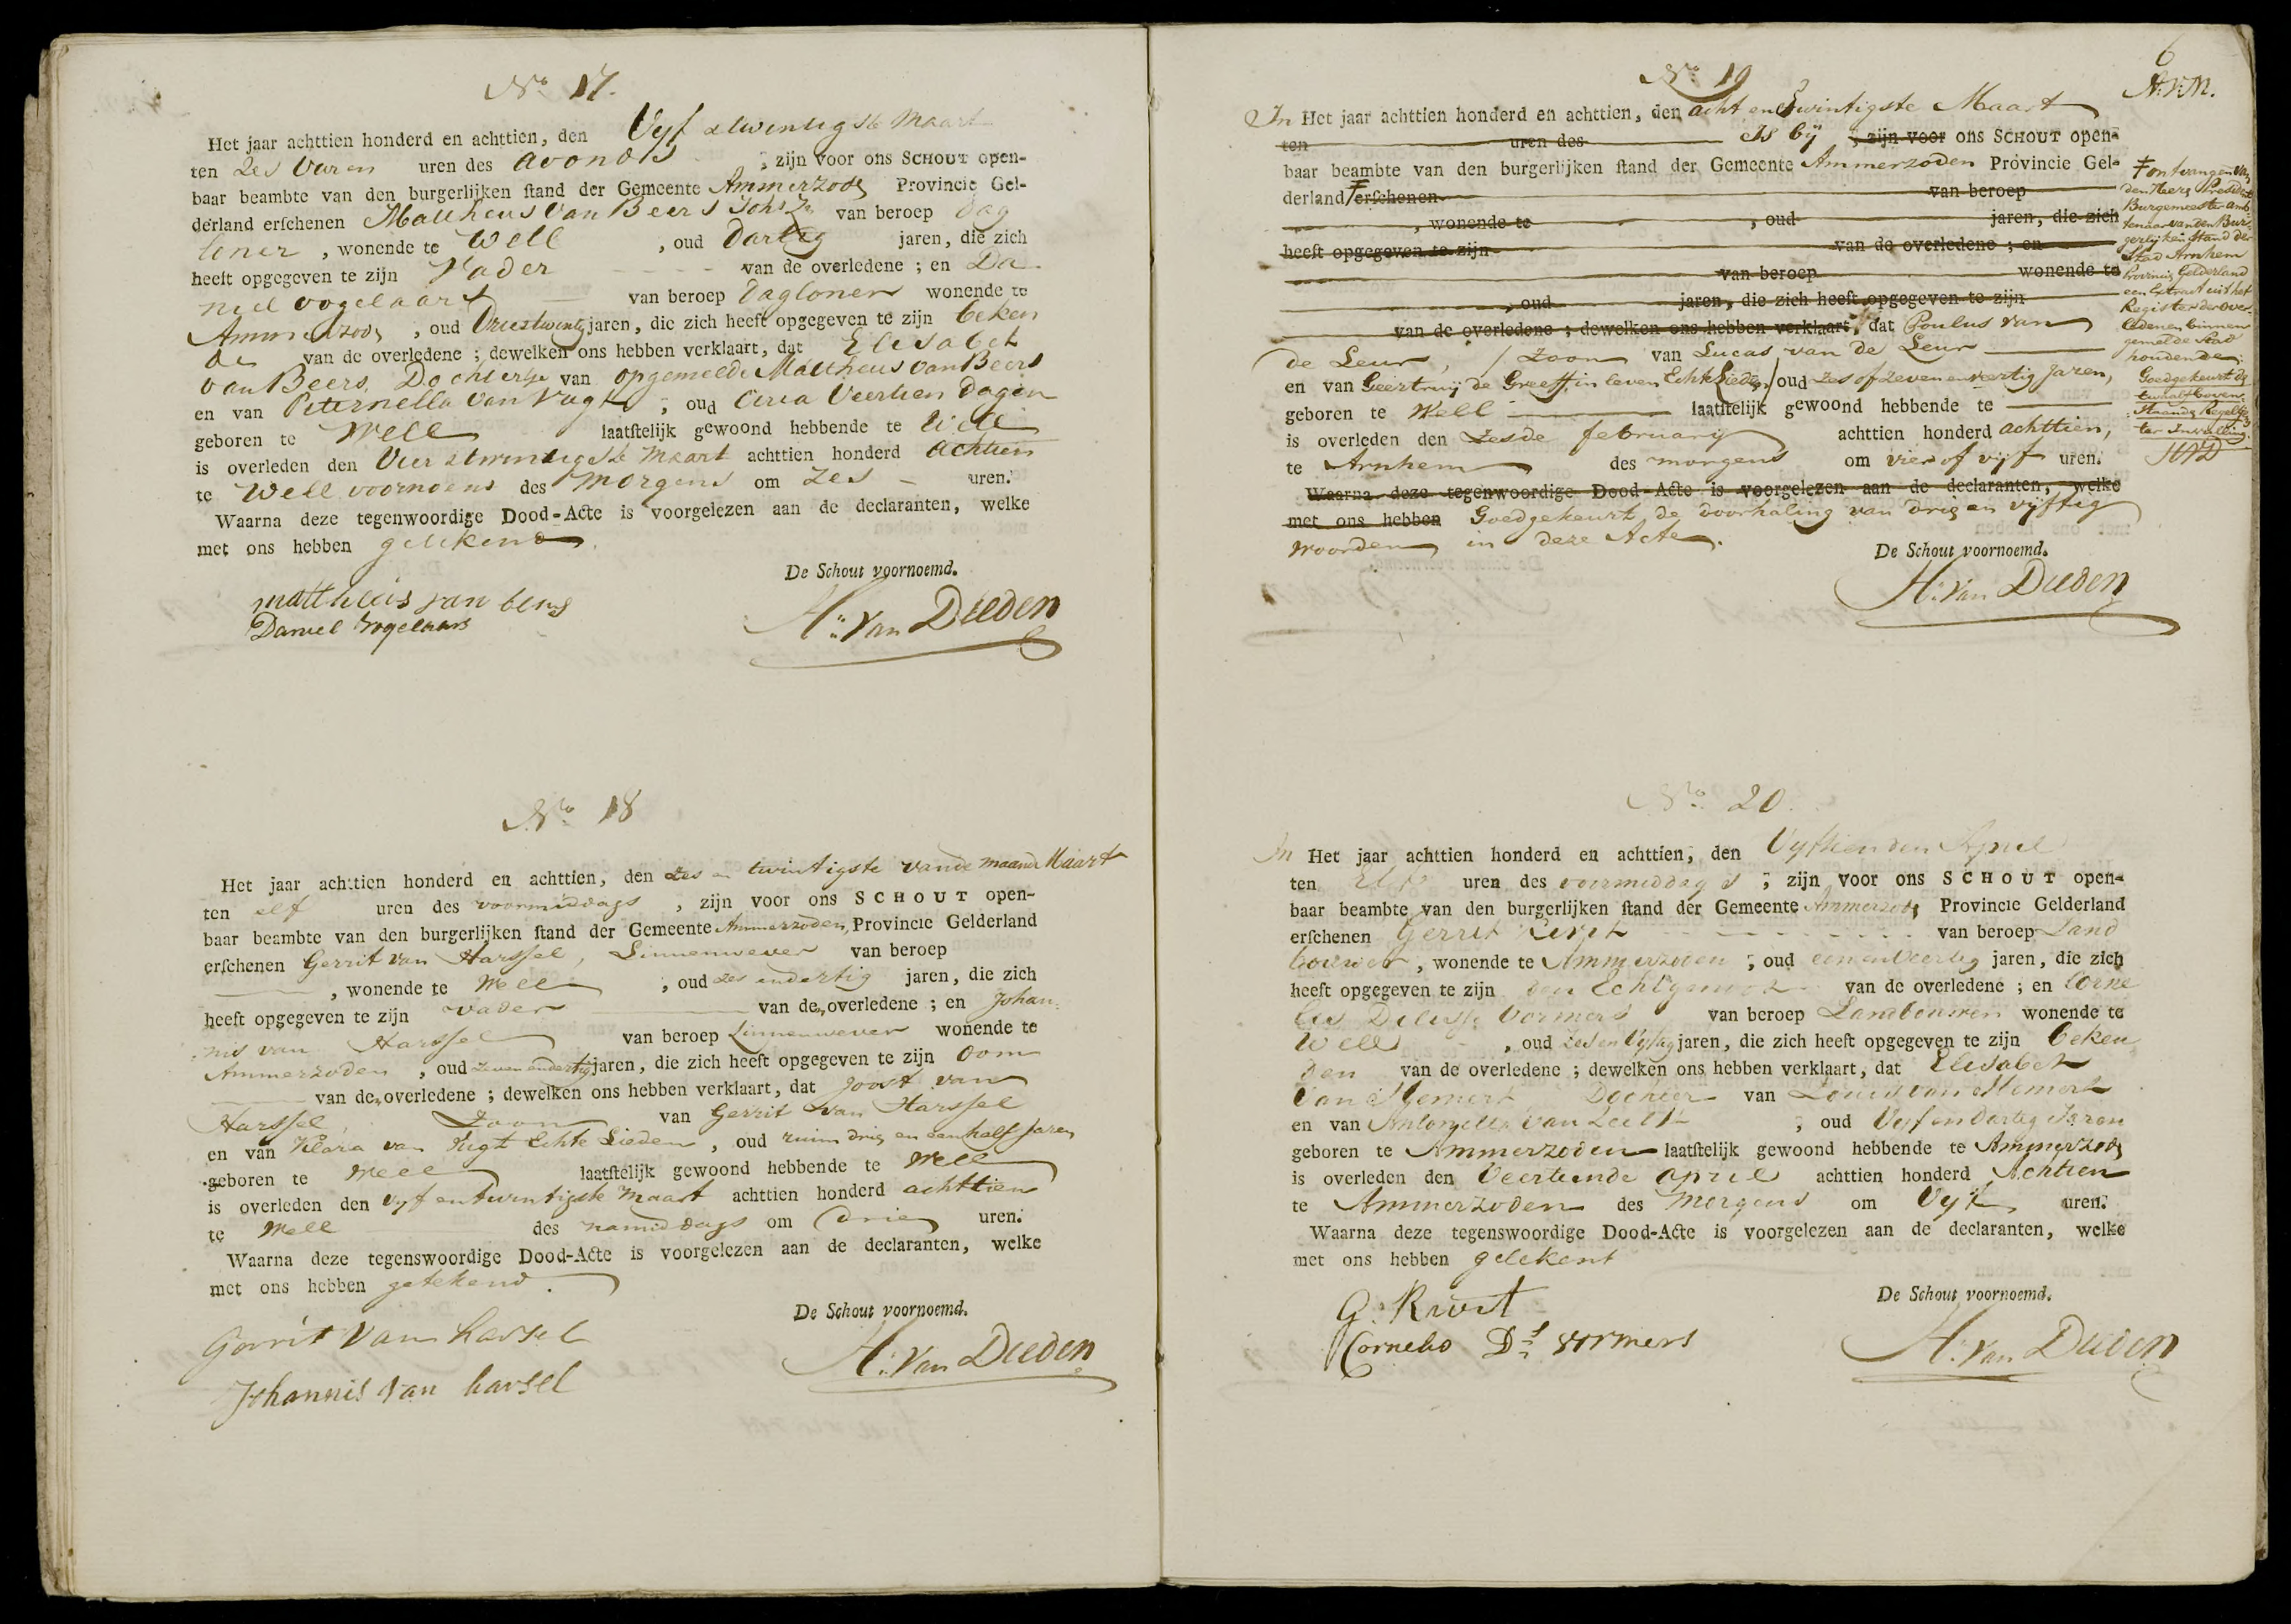 No 17.
Het jaar achttien honderd en achttien, den Vyf & twintigste Maart
ten Zes Uuren uren des avonds ; zijn voor ons SCHOUT open-
baar beambte van den burgerlijken ſtand der Gemeente Ammerzoden Provincie Gel-
derland erſchenen Mattheus Van Beers Johsz van beroep Dag
loner , wonende te Well , oud Dartig jaren, die zich
heeft opgegeven te zijn Vader van de overledene ; en Da
niel vogelaars van beroep Dagloner wonende te
Ammerzoden , oud Drie & twintig jaren, die zich heeft opgegeven te zijn beken
de van de overledene ; dewelken ons hebben verklaart, dat Elisabet
van Beers, Dochtertje van opgemelde Mattheus van Beers
en van Peternella Van Vugt , oud Circa Veertien Dagen
geboren te Well laatſtelijk gewoond hebbende te Well
is overleden den Vier & twintigste Maart achttien honderd achtien
te Well voornoemd des Morgens om Zes uren.
Waarna deze tegenwoordige Dood-Acte is voorgelezen aan de declaranten, welke
met ons hebben getekend.
De Schout voornoemd.
mattheeis van beers
Daniel Vogelaars
H. Van Dieden
No 18
Het jaar achttien honderd en achttien, den zes en twintigste van de maand Maart
ten elf uren des voormiddags , zijn voor ons SCHOUT open-
baar beambte van den burgerlijken ſtand der Gemeente Ammerzoden, Provincie Gelderland
erſchenen Gerrit van Harssel, Linnenwever van beroep
, wonende te Well , oud zes en dertig jaren, die zich
heeft opgegeven te zijn vader van den overledene ; en Johan
nis van Harssel van beroep Linnenwever wonende te
Ammerzoden , oud zeven en dertig jaren, die zich heeft opgegeven te zijn oom
van den overledene ; dewelken ons hebben verklaart, dat Joost van
Harssel, Zoon van Gerrit van Harssel
en van Klara van Vugt Echte Lieden , oud ruim drie en een half Jaren
geboren te Well laatſtelijk gewoond hebbende te Well
is overleden den vyf en twintigste Maart achttien honderd achttien
te Well des namiddags om drie uren.
Waarna deze tegenswoordige Dood-Acte is voorgelezen aan de declaranten, welke
met ons hebben getekend.
De Schout voornoemd.
Gerrit Van harsel
Johannis van harsel
H. Van Dieden
6
No 19
In Het jaar achttien honderd en achttien, den acht en twintigste Maart
ten uren des Is bij ; zijn voor ons SCHOUT open-
baar beambte van den burgerlijken ſtand der Gemeente Ammerzoden Provincie Gel-
derland erſchenen van beroep
, wonende te , oud jaren, die zich
heeft opgegeven te zijn van de overledene ; en
van beroep wonende te
, oud jaren, die zich heeft opgegeven te zijn
van de overledene ; dewelken ons hebben verklaart, dat Poulus van
de Leur, / Zoon van Lucas van de Leur
en van Geertruij de Greeff, in leven Echte Lieden / oud zes of zeven en veertig Jaren,
geboren te Well laatſtelijk gewoond hebbende te
is overleden den Zesde februarij achttien honderd achttien,
te Arnhem des morgens om vier of vijf uren.
Waarna deze tegenwoordige Dood-Acte is voorgelezen aan de declaranten, welke
met ons hebben Goedgekeurt de doorhaling van drie en vijftig
woorden in deze Acte.
De Schout voornoemd.
H. Van Dieden
ontvangen van
den Heer President
Burgemeester amb
tenaar van den Bur-
gerlijken Stand der
Stad Arnhem
Provincie Gelderland
een Extract uit het
Register der over-
ledenen binnen
gemelde Stad
houdende:
Goedgekeurt de
twaalf boven-
staande Regels
ter Invulling.
HVD
No 20.
In Het jaar achttien honderd en achttien, den Vyftienden April
ten Elf uren des voormiddags ; zijn voor ons SCHOUT open-
baar beambte van den burgerlijken ſtand der Gemeente Ammerzoden Provincie Gelderland
erſchenen Gerrit van beroep Land
bouwer , wonende te Ammerzoden , oud een en Veertig jaren, die zich
heeft opgegeven te zijn den Echtgenoot van de overledene ; en Corne
lis Vormers van beroep Landbouwer wonende te
Well , oud Zes en Vyftig jaren, die zich heeft opgegeven te zijn beken
den van de overledene ; dewelken ons hebben verklaart, dat Elisabet
Van Hemert Dochter van Louis van Hemert
en van Antonella van ; oud Vyf en Dartig Jaren
geboren te Ammerzoden laatſtelijk gewoond hebbende te Ammerzoden
is overleden den Veertiende April achttien honderd Achtien
te Ammerzoden des Morgens om Vyf uren.
Waarna deze tegenswoordige Dood-Acte is voorgelezen aan de declaranten, welke
met ons hebben getekent
De Schout voornoemd.
G. Kivit
Cornelis Ds vormers
H. Van Dieden